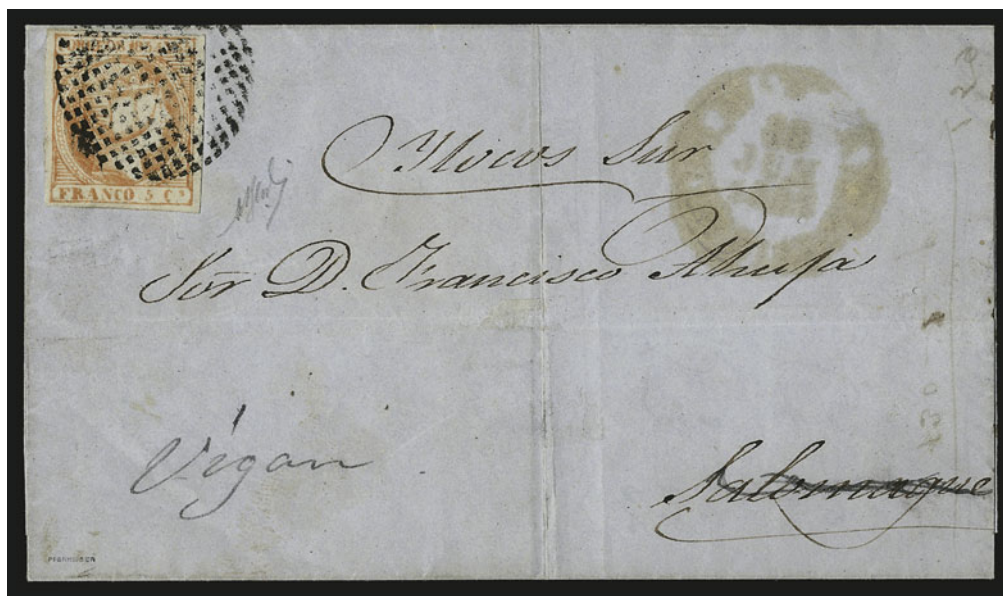 FRANCO 5 Cs
Ylocos Sur
Sor D. Francisco Ahuja
Vigan
Salomague